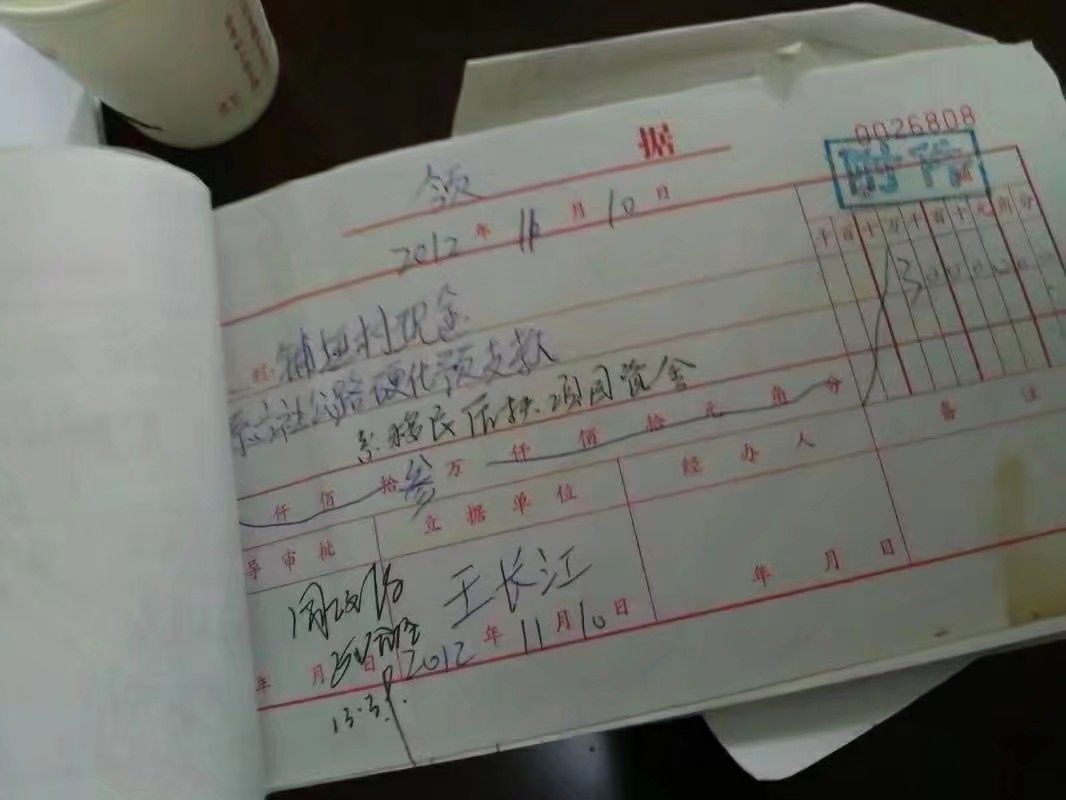 0026808
附件
领 据
2012 年 11 月 10 日
千 百 十 万 千 百 十 元 角 分
3
姓 铺里村现金
系六社公路硬化预支款
系移民后扶项目资金
仟 佰 拾 叁 万 仟 佰 拾 元 角 分
导 审 批 立 据 单 位 经 办 人 备 注
王长江
年 月 日 2012 年 11 月 10 日 年 月 日
13.3.9.